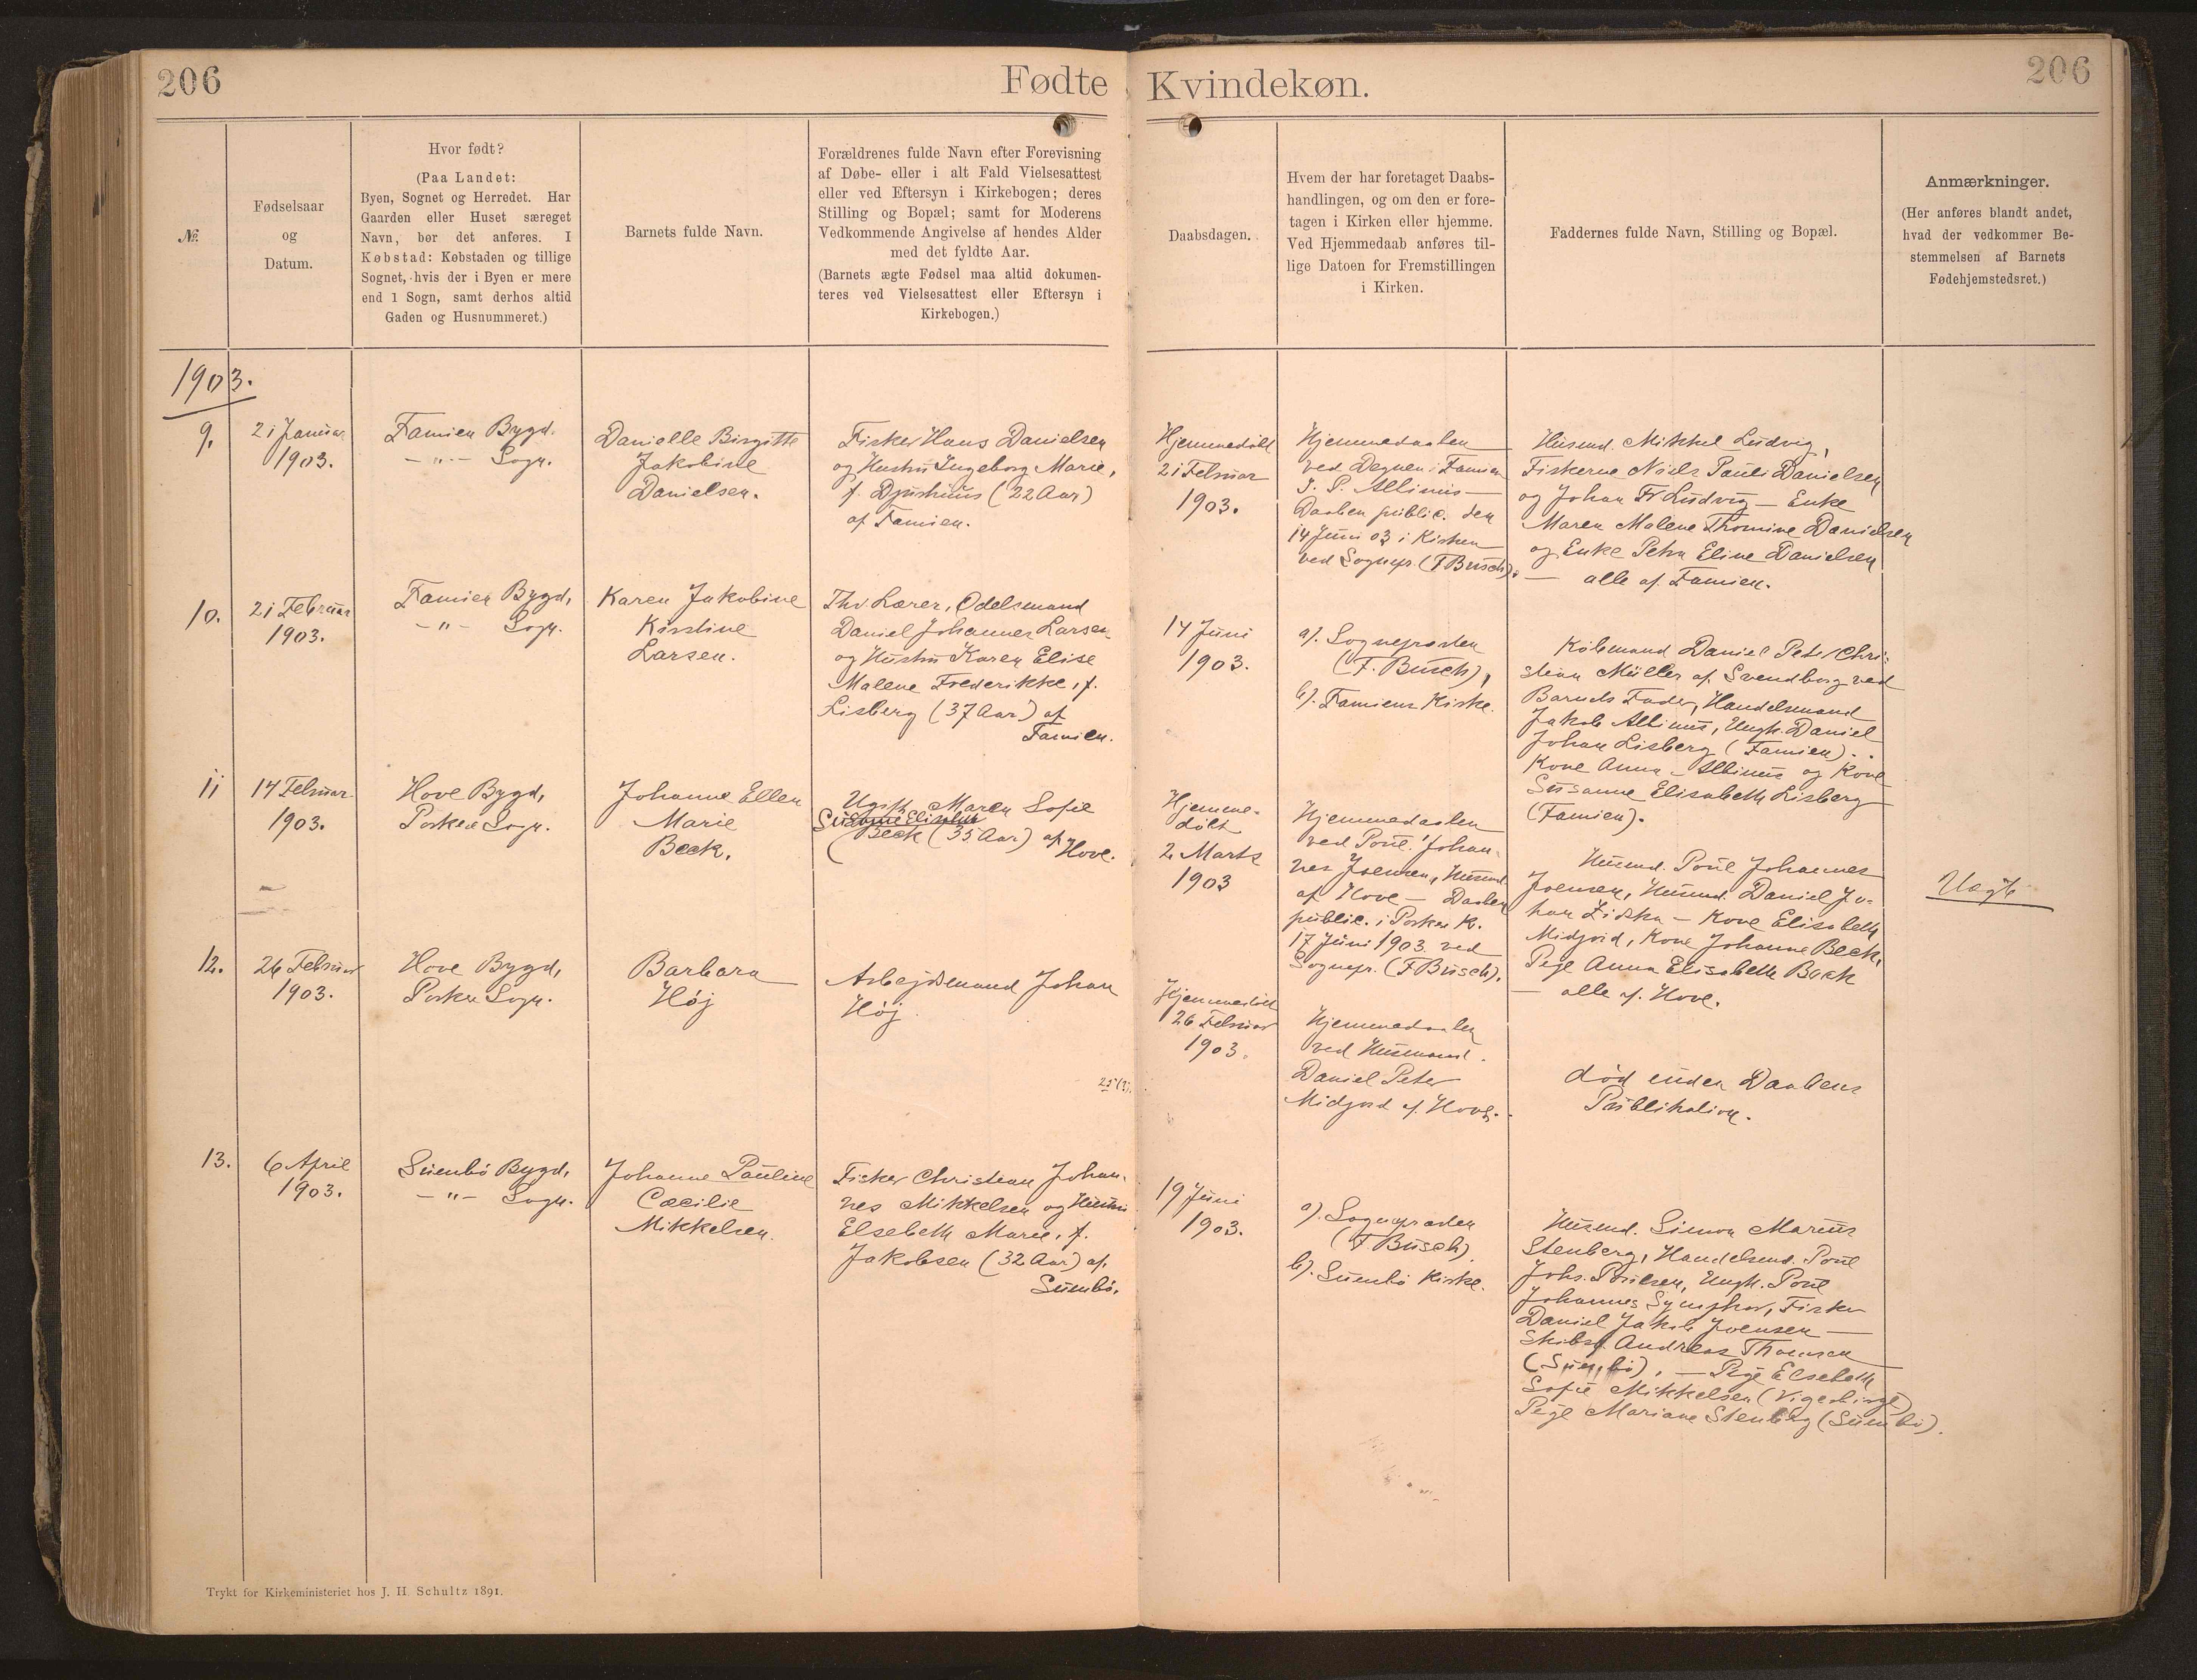 206
Fødte
Kvindekøn.
206
№
Fødselsaar
og
Datum.
Hvor født?
(Paa Landet:
Byen, Sognet og Herredet. Har
Gaarden eller Huset særeget
Navn, bør det anføres. I
Købstad: Købstaden og tillige
Sognet, hvis der i Byen er mere
end 1 Sogn, samt derhos altid
Gaden og Husnummeret.)
Barnets fulde Navn.
Forældrenes fulde Navn efter Forevisning
af Døbe- eller i alt Fald Vielsesattest
eller ved Eftersyn i Kirkebogen; deres
Stilling og Bopæl; samt for Moderens
Vedkommende Angivelse af hendes Alder
med det fyldte Aar.
(Barnets ægte Fødsel maa altid dokumen-
teres ved Vielsesattest eller Eftersyn i
Kirkebogen.)
Daabsdagen.
Hvem der har foretaget Daabs-
handlingen, og om den er fore-
tagen i Kirken eller hjemme.
Ved Hjemmedaab anføres til-
lige Datoen for Fremstillingen
i Kirken.
Faddernes fulde Navn, Stilling og Bopæl.
Anmærkninger.
(Her anføres blandt andet,
hvad der vedkommer Be-
stemmelsen af Barnets
Fødehjemstedsret.)
1903.
9.
21 Januar
1903.
Famien Bygd.
-"- Sogn.
Danielle Birgitte
Jakobine
Danielsen.
Fisker Hans Danielsen
og Hustru Ingeborg Marie,
f. Djurhuus (22 Aar)
af Famien.
Hjemmedøbt
21 Februar
1903.
Hjemmedaaben
ved Degnen i Famien
J. P. Albinus —
Daaben public. den
14 Juni 03 i Kirken
ved Sognepr. (F Busch).
Husmd. Mikkel Ludvig,
Fiskerne Niels Pauli Danielsen
og Johan Fr Ludvig — Enke
Maren Malene Thomine Danielsen
og Enke Petra Eline Danielsen
— alle af Famien.
10.
21 Februar
1903.
Famien Bygd,
-"- Sogn.
Karen Jakobine
Kirstine
Larsen.
Thv. Lærer, Odelsmand
Daniel Johannes Larsen
og Hustru Karen Elise
Malene Frederikke, f.
Lisberg (37 Aar) af
Famien.
14 Juni
1903.
a). Sognepræsten
(F. Busch),
b). Famiens Kirke.
Købmand Daniel Peter Chri-
stian Müller af Svendborg ved
Barnets Fader, Handelsmand
Jakob Albinus, Ungk. Daniel
Johan Lisberg (Famien).
Kone Anna Albinus og Kone
Susanne Elisabeth Lisberg
(Famien).
11
14 Februar
1903.
Hove Bygd,
Porkere Sogn.
Johanne Ellen
Marie
Beck.
Ugift Maren Sofie
Susanne Elisabeth
Beck (35 Aar) af
Hove.
Hjemme-
døbt
2. Marts
1903
Hjemmedaaben
ved Poul Johan-
nes Joensen, Husmd
af Hove — Daaben
public. i Porkere K.
17 Juni 1903 ved
Sognepr. (F Busch).
Husmd. Poul Johannes
Joensen, Husmd. Daniel Jo-
han Ziska — Kone Elisabeth
Midjord, Kone Johanne Beck,
Pige Anna Elisabeth Beck
— alle af Hove.
Uægte
12.
26 Februar
1903.
Hove Bygd,
Porkere Sogn.
Barbara
Høj
Arbejdsmand Johan
Høj
Hjemmedøbt
26 Februar
1903.
Hjemmedaaben
ved Husmand
Daniel Peter
Midjord af Hove.
død inden Daabens
Publikation.
13.
6 April
1903.
Sumbø Bygd,
-"- Sogn.
Johanne Pauline
Cæcilie
Mikkelsen.
Fisker Christian Johan-
nes Mikkelsen og Hustru
Elsebeth Marie, f.
Jakobsen (32 Aar) af
Sumbø.
19 Juni
1903.
a). Sognepræsten
(F Busch)
b). Sumbø Kirke.
Husmd. Simon Marius
Stenberg, Handelsmd. Poul
Johs. Poulsen, Ungk. Poul
Johannes Symphor, Fisker
Daniel Jakob Joensen —
Skibsf. Andreas Thomsen
(Sumbø). — Pige Elsebeth
Sofie Mikkelsen (Vigerbirge)
Pige Mariane Stenberg (Sumbø).
Trykt for Kirkeministeriet hos J. H. Schultz 1891.